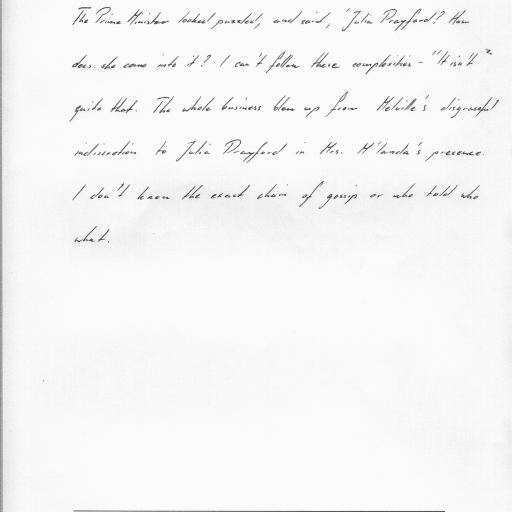 The Prime Minister looked puzzled, and said, 'Julia Drayford? How
does she come into it? I can't follow these complexities - "It isn't"
quite that. The whole business blew up from Melville's disgraceful
indiscretion to Julia Drayford in Mrs. M'landa's presence.
I don't know the exact chain of gossip or who told who
what.